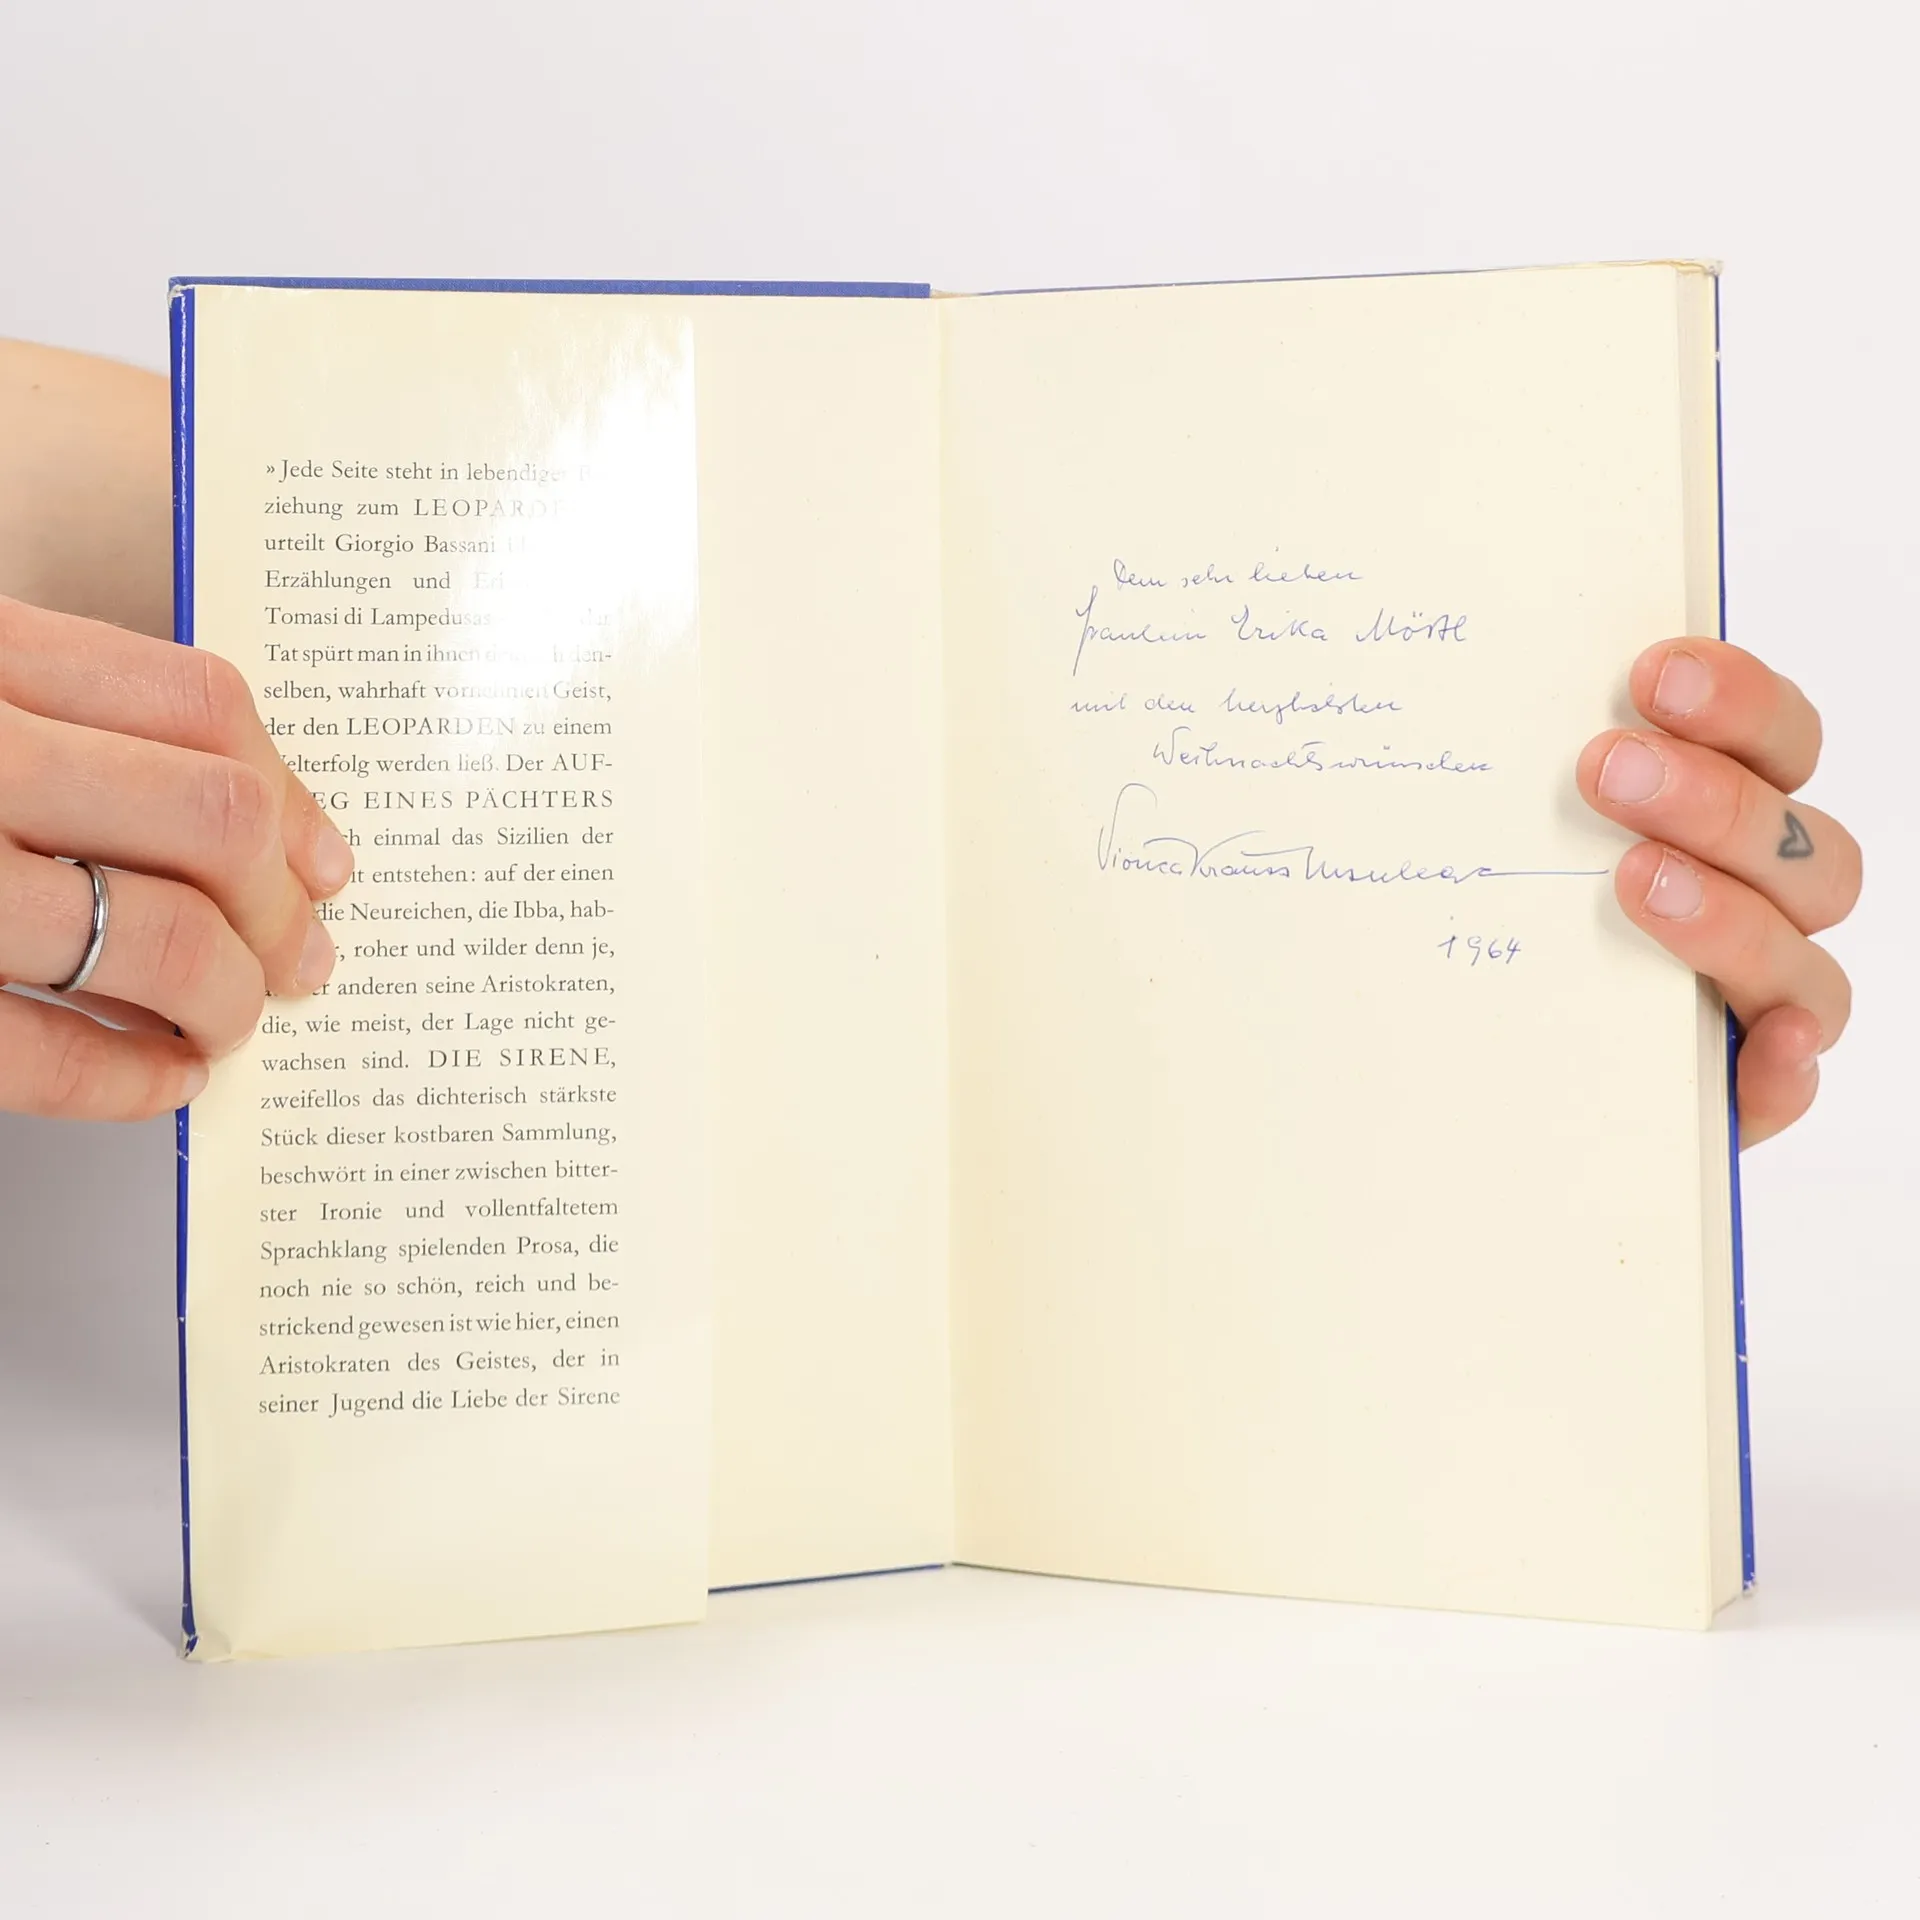 »Jede Seite steht in lebendiger
ziehung zum LEOPARDE
urteilt Giorgio Bassani
Erzählungen und
Tomasi di Lampedusas
Tat spürt man in ihnen den-
selben, wahrhaft vornehmen Geist,
der den LEOPARDEN zu einem
Welterfolg werden ließ. Der AUF-
EG EINES PÄCHTERS
einmal das Sizilien der
entstehen: auf der einen
die Neureichen, die Ibba, hab-
roher und wilder denn je,
anderen seine Aristokraten,
die, wie meist, der Lage nicht ge-
wachsen sind. DIE SIRENE,
zweifellos das dichterisch stärkste
Stück dieser kostbaren Sammlung,
beschwört in einer zwischen bitter-
ster Ironie und vollentfaltetem
Sprachklang spielenden Prosa, die
noch nie so schön, reich und be-
strickend gewesen ist wie hier, einen
Aristokraten des Geistes, der in
seiner Jugend die Liebe der Sirene
Dem sehr lieben
Fräulein Erika Möstl
mit den herzlichsten
Weihnachtswünschen
Krauss
1964